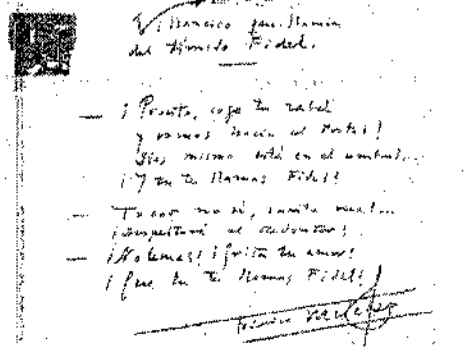 Villancico que llaman
del Fidel.
— ¡Pronto, coge tu rabel
y vamos hacia el Portal!
Dios mismo está en el umbral...
¡Y tu te llamas Fidel!
— Tocar no sé,
¡despertará al Redentor!
— ¡No temas! ¡grita tu amor!
¡Que tu te llamas Fidel!